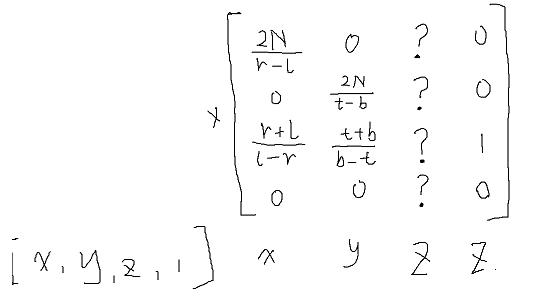 2N/r-l 0 ? 0
0 2N/t-b ? 0
x
r+l/l-r t+b/b-t ? 1
0 0 ? 0
[x, y, z, 1] x y z z.